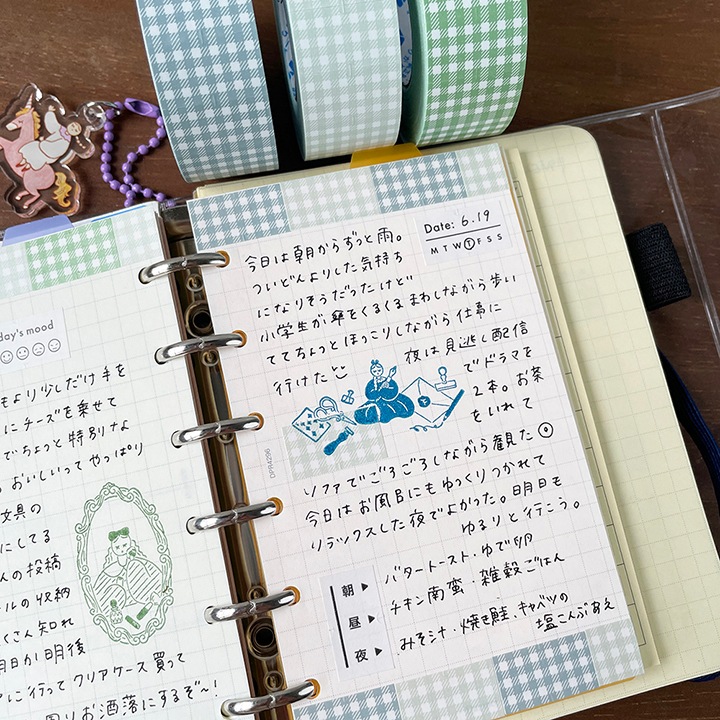 day's mood
もより少しだけ手を
にチーズを乗せて
でちょっと特別な
おいしいって やっぱり
文具の
にしてる
人の投稿
ールの収納
くさん知れ
明日か明後
アに行ってクリアケース買って
周りお洒落にするぞ〜!
Date: 6.19
M T W T F S S
今日は朝からずっと雨。
ついどんよりした気持ち
になりそうだったけど
小学生が傘をくるくるまわしながら歩い
ててちょっとほっこりしながら仕事に
行けた
夜は見逃し配信
でドラマを
2本。お茶
をいれて
ソファでごろごろしながら観た
今日はお風呂にもゆっくりつかれて
リラックスした夜でよかった。明日も
ゆるりと行こう。
DPR4296
朝▶ バタートースト・ゆで卵
昼▶ チキン南蛮・雑穀ごはん
夜▶ みそシナ・焼き鮭、キャベツの
塩こんぶあえ